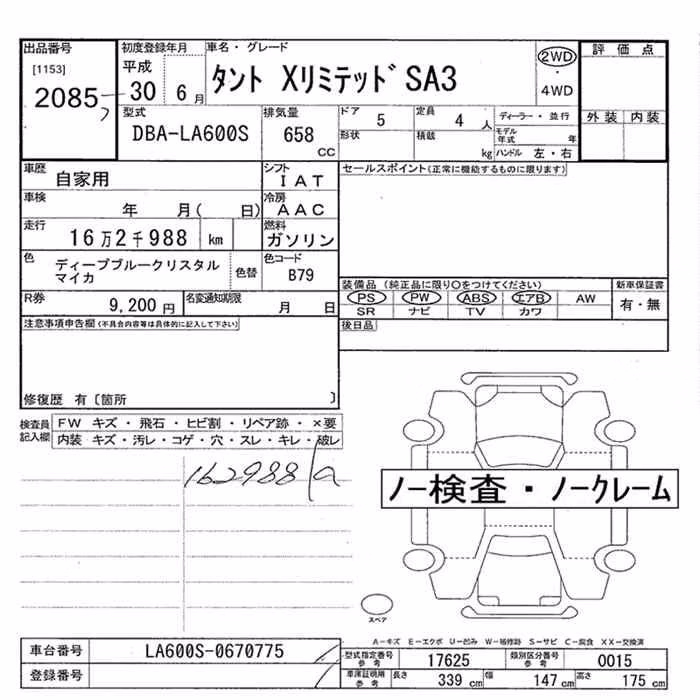 出品番号
[1153]
2085
初度登録年月
平成
30 6月
車名・グレード
タント XリミテッドSA3
2WD
・
4WD
評価点
外装 内装
型式
DBA-LA600S
排気量
658
CC
ドア
5
定員
4 人
形状
積載
kg
ディーラー・並行
モデル年式 年
ハンドル 左・右
車歴
自家用
シフト
IAT
車検
年 月( 日)
冷房
AAC
走行
16万2千988 km
燃料
ガソリン
色
ディープブルークリスタル
マイカ
色替
色コード
B79
R券
9,200円
名変通知期限
月 日
セールスポイント(正常に機能するものに限ります)
装備品 (純正品に限り○をつけてください)
PS PW ABS エアB AW
SR ナビ TV カワ
新車保証書
有・無
後日品
注意事項申告欄(不具合内容等は具体的に記入して下さい)
修復歴 有〔箇所 〕
検査員
記入欄
FW キズ・飛石・ヒビ割・リペア跡・×要
内装 キズ・汚レ・コゲ・穴・スレ・キレ・破レ
162988
ノー検査・ノークレーム
スペア
A-キズ E-エクボ U-凹み W-補修跡 S-サビ C-腐食 XX-交換済
車台番号
LA600S-0670775
登録番号
型式指定番号
参考
17625
類別区分番号
参考
0015
車庫証明用
参考
長さ
339 cm
幅
147 cm
高さ
175 cm